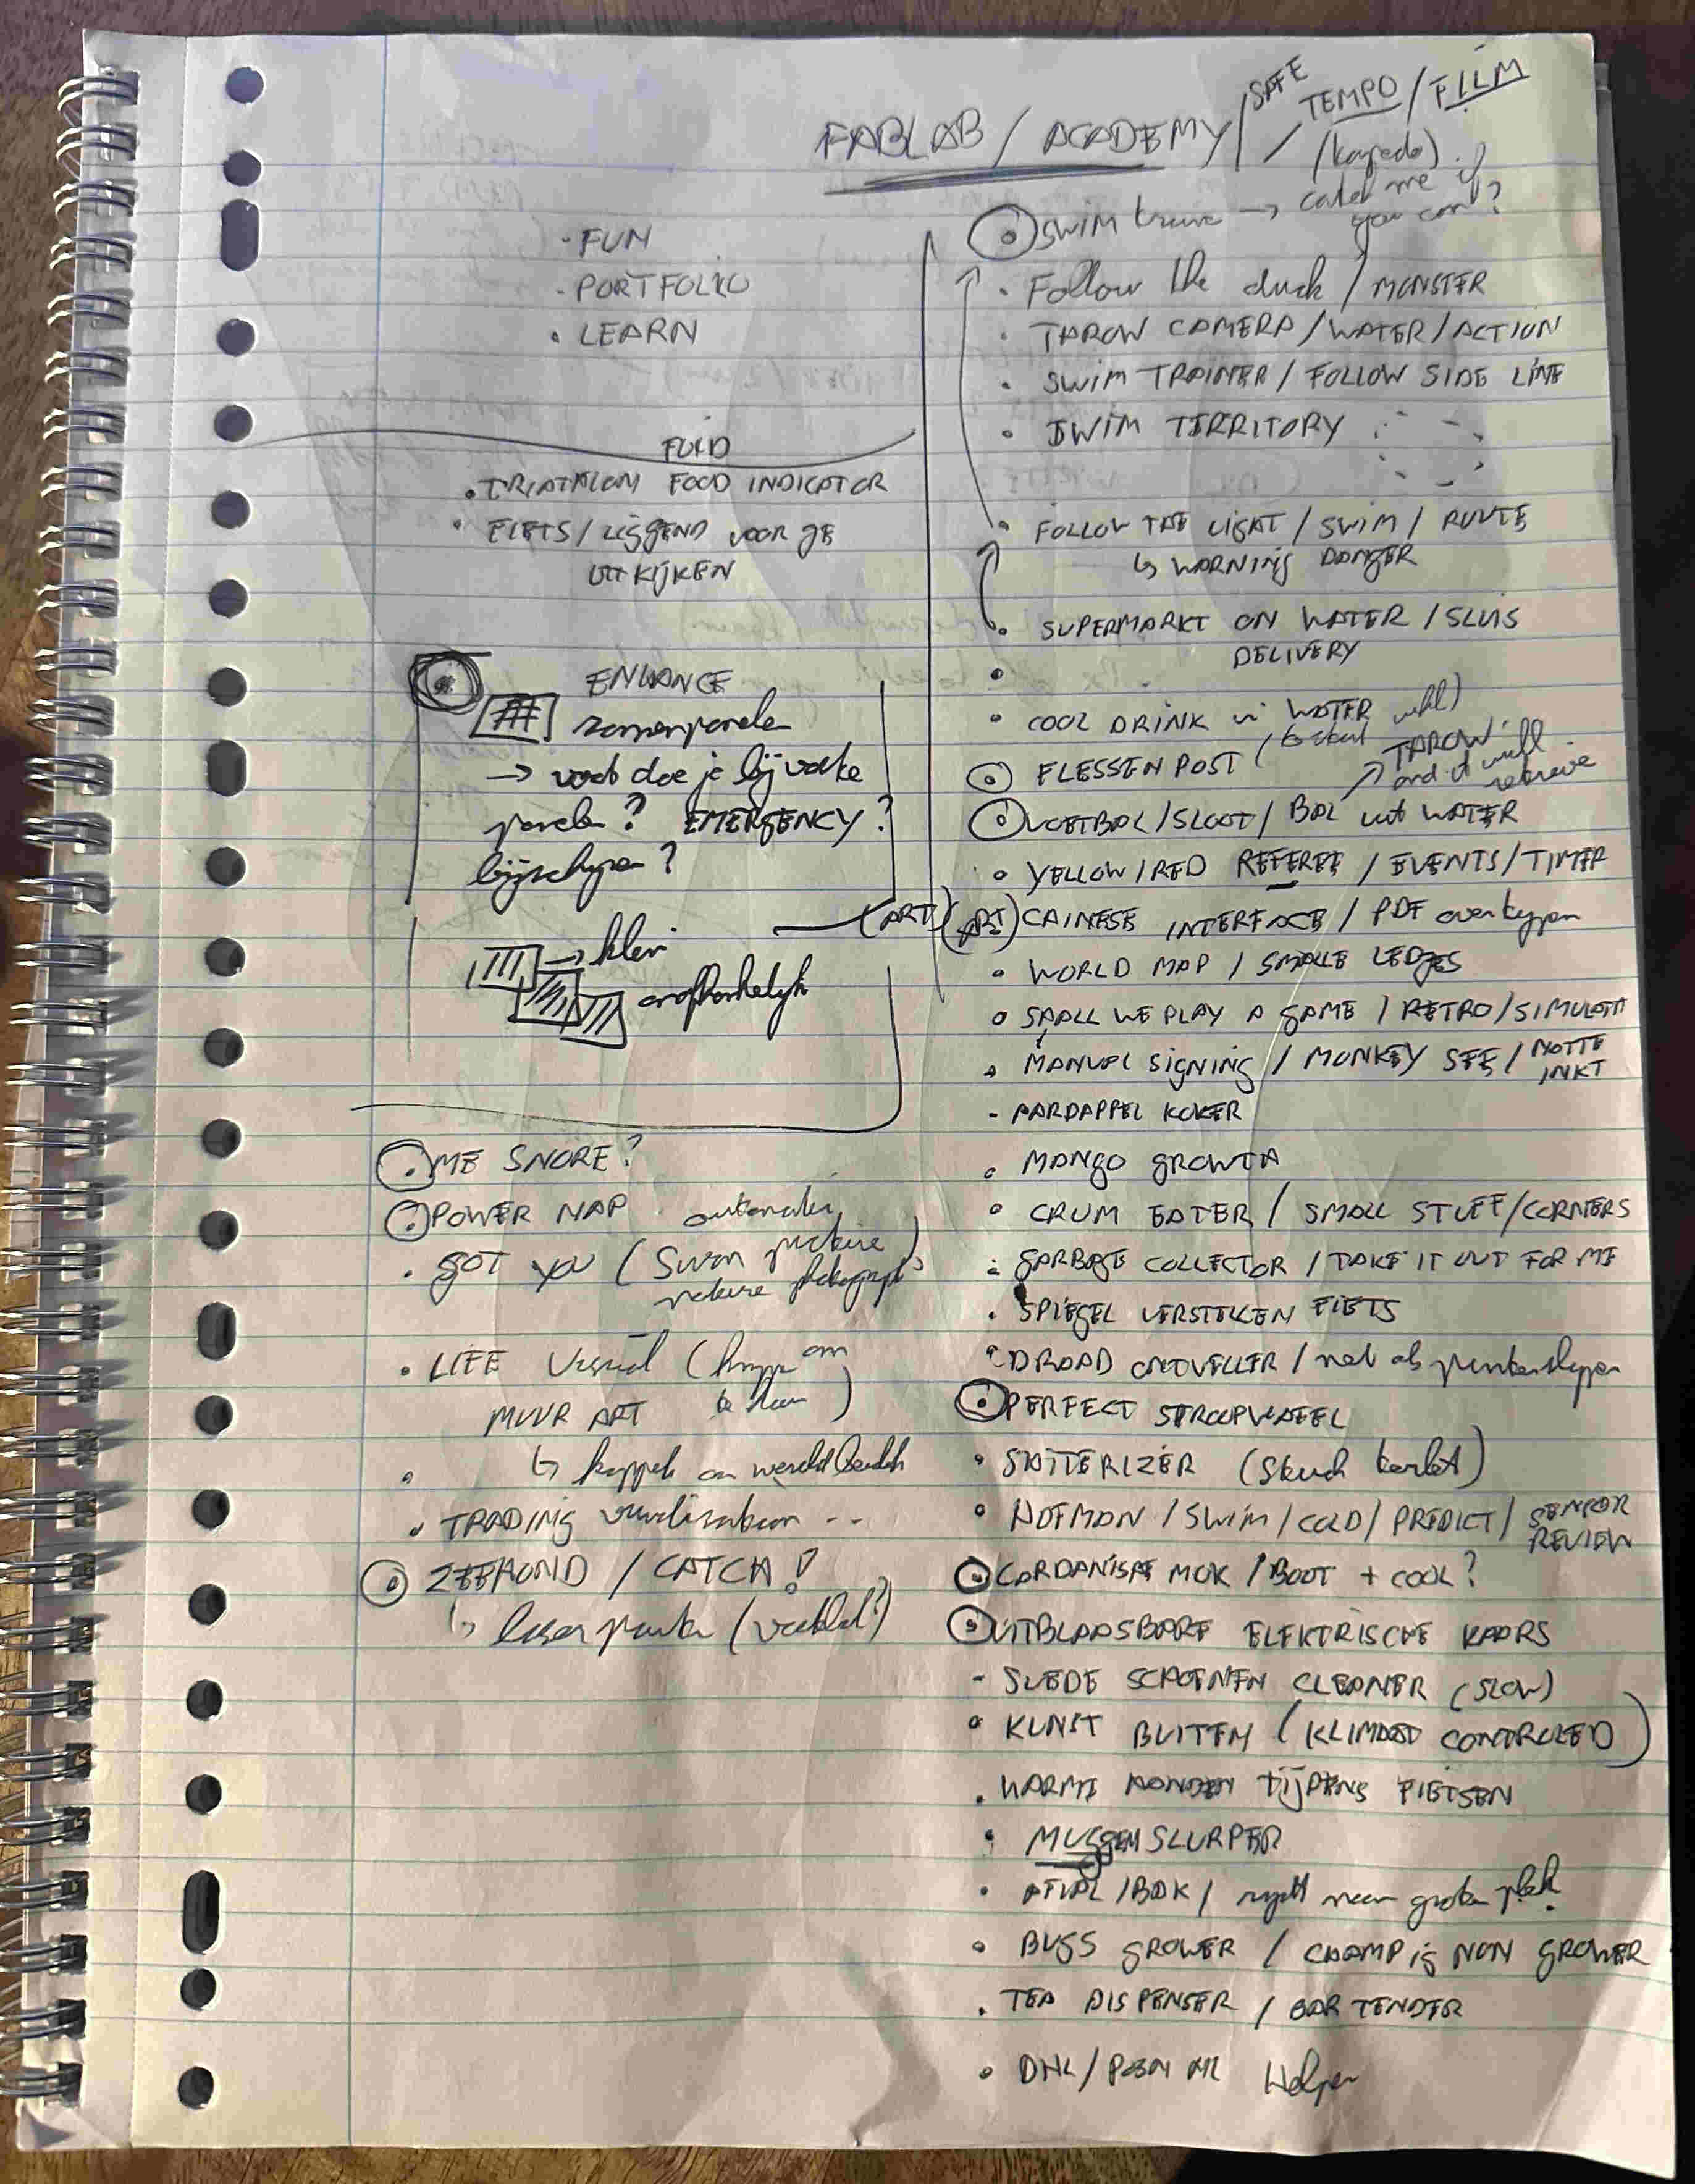 FABLAB / ACADEMY / SAFE / TEMPO / FILM
catch me if
you can?
- FUN
- PORTFOLIO
- LEARN
FOOD
• TRIATHLON FOOD INDICATOR
• FIETS / LIGGEND VOOR JE
UIT KIJKEN
ENHANCE
zonnepanelen
→ wat doe je bij welke
panelen? EMERGENCY?
→ klein
onafhankelijk
(ART)
• ME SNORE?
• POWER NAP
• GOT YOU (Swan picture)
nature photograph
• LIFE Visual (knop om
MUUR ART te
↳ koppelen aan wereldbeeld
• TRADING visualisation --
• ZEEHOND / CATCH!
↳ laser pointer
• SWIM
• Follow the duck / MONSTER
• THROW CAMERA / WATER / ACTION
• SWIM TRAINER / FOLLOW SIDE LINE
• SWIM TERRITORY
• FOLLOW THE LIGHT / SWIM / ROUTE
↳ WARNING DANGER
• SUPERMARKT ON WATER / SLUIS
DELIVERY
• COOL DRINK in WATER
• FLESSENPOST
→ THROW
and it will
retrieve
• VOETBAL / SLOOT / BAL uit WATER
• YELLOW / RED REFEREE / EVENTS / TIMER
(ART) CHINESE INTERFACE / PDF overtypen
• WORLD MAP / SMALLE LEDGES
• SHALL WE PLAY A GAME / RETRO /
• MANUAL SIGNING / MONKEY SEE / NATTE
INKT
- AARDAPPEL KOKER
• MANGO GROWTH
• CRUM EATER / SMALL STUFF / CORNERS
• GARBAGE COLLECTOR / TAKE IT OUT FOR ME
• SPIEGEL VERSTELLEN FIETS
• DRAAD / net als
• PERFECT STROOPWAFEL
• SHITTERIZER
• HOFMAN / SWIM / COLD / PREDICT / SENSOR
REVIEW
• CARDANISHE MOK / BOOT + COOL?
• UITBLAASBARE ELEKTRISCHE KAARS
- SUEDE SCHOENEN CLEANER (SLOW)
• KUNST BUITEN (KLIMAAT CONTROLED)
• WARME HANDEN TIJDENS FIETSEN
• MUGGEN SLURPER
• AFVAL / BAK / naar grote plek
• BUGS GROWER / CHAMPIGNON GROWER
• TEA DISPENSER / BARTENDER
• DHL / Helper